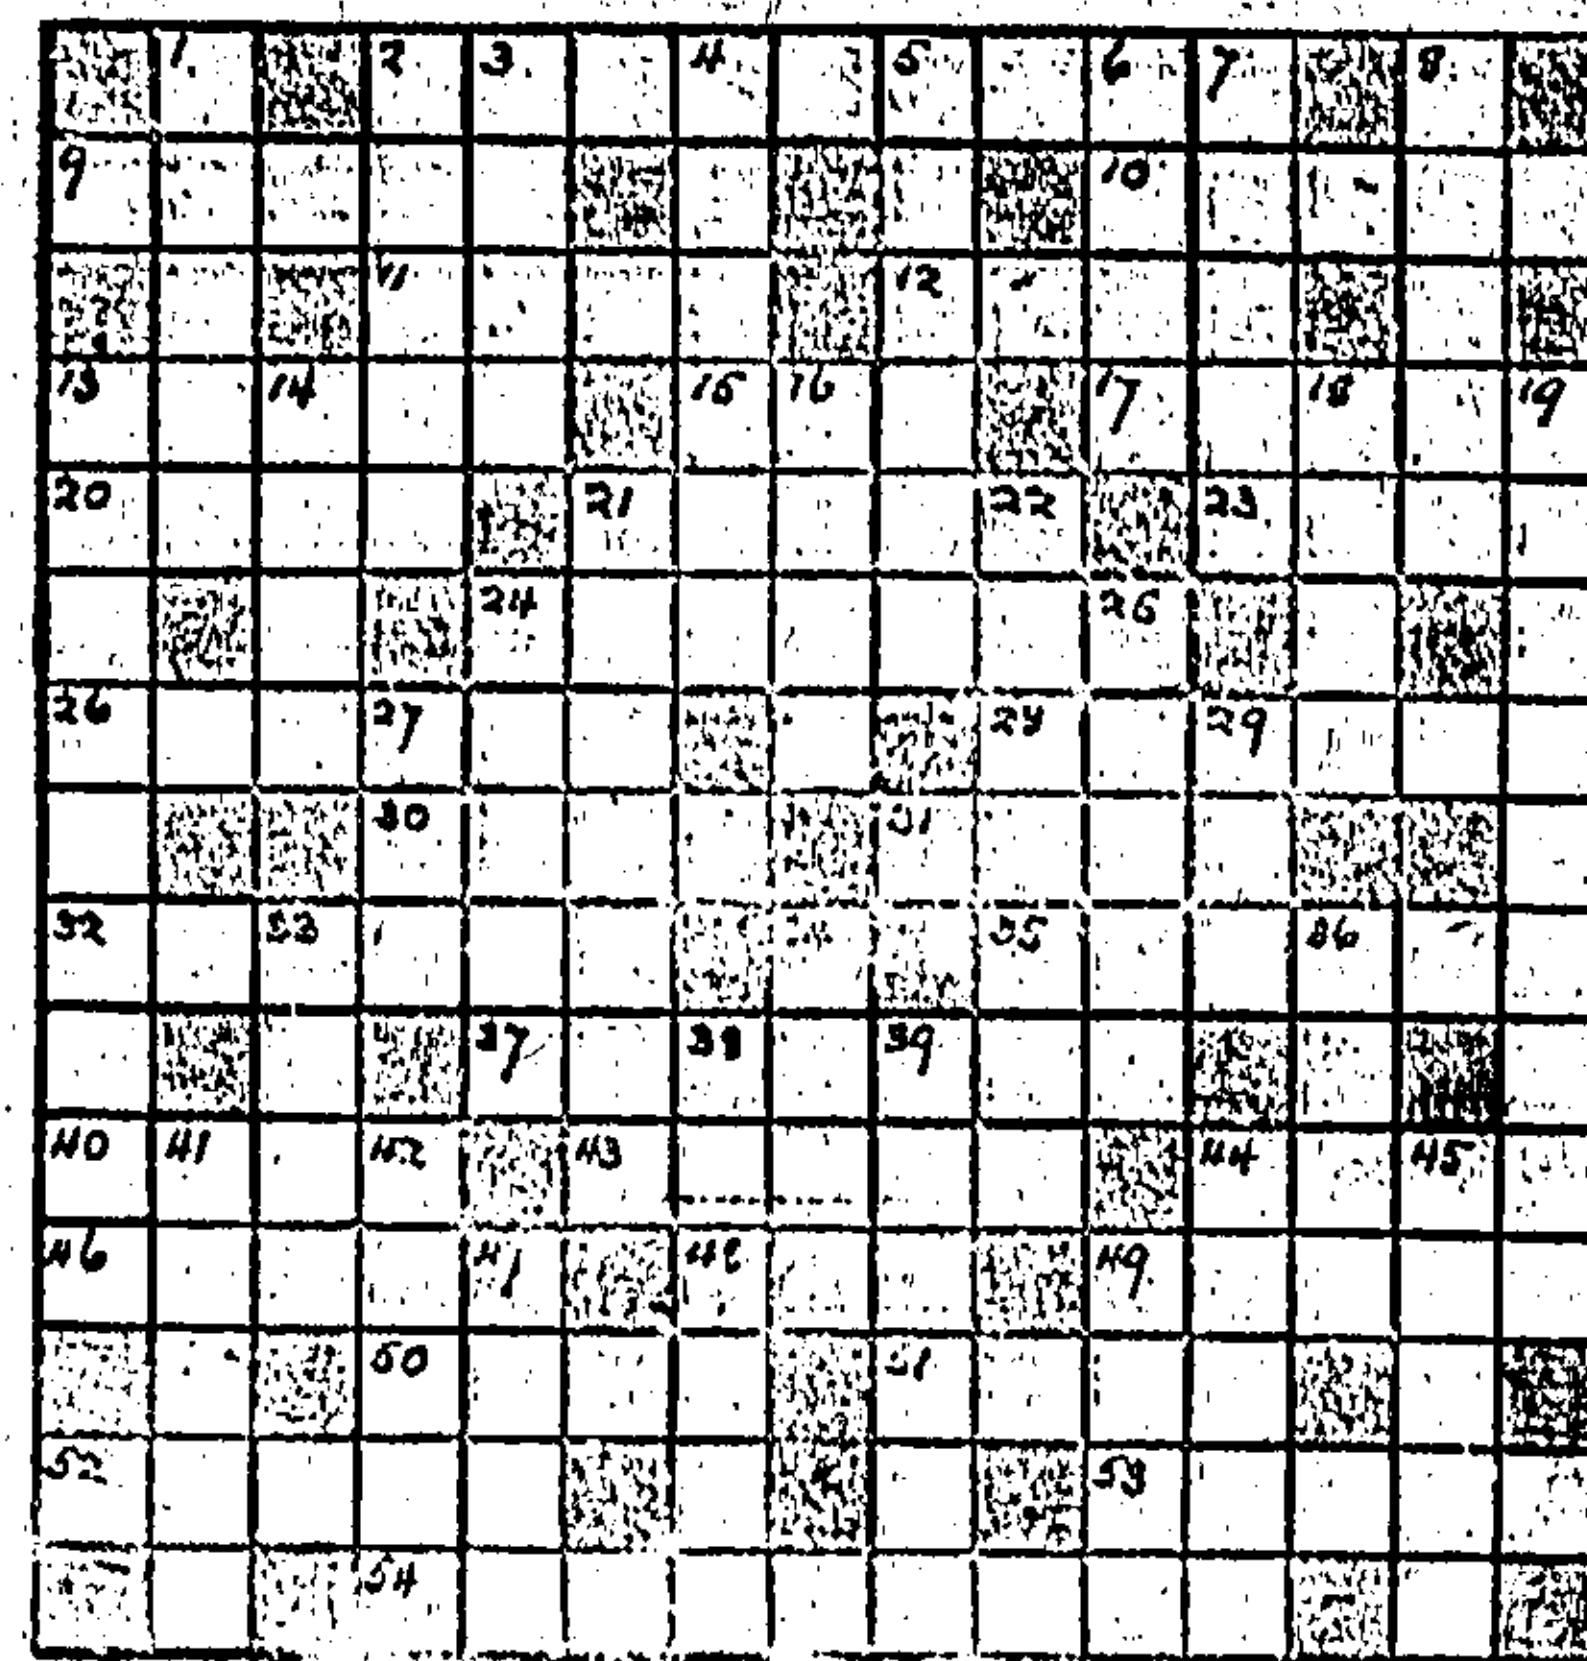 1 2 3 4 5 6 7 8
9 10
11 12
13 14 15 16 17 18 19
20 21 22 23
24 25
26 27 28 29
30 31
32 33 34 35 36
37 38 39
40 41 42 43 44 45
46 47 48 49
50 51
52 53
54